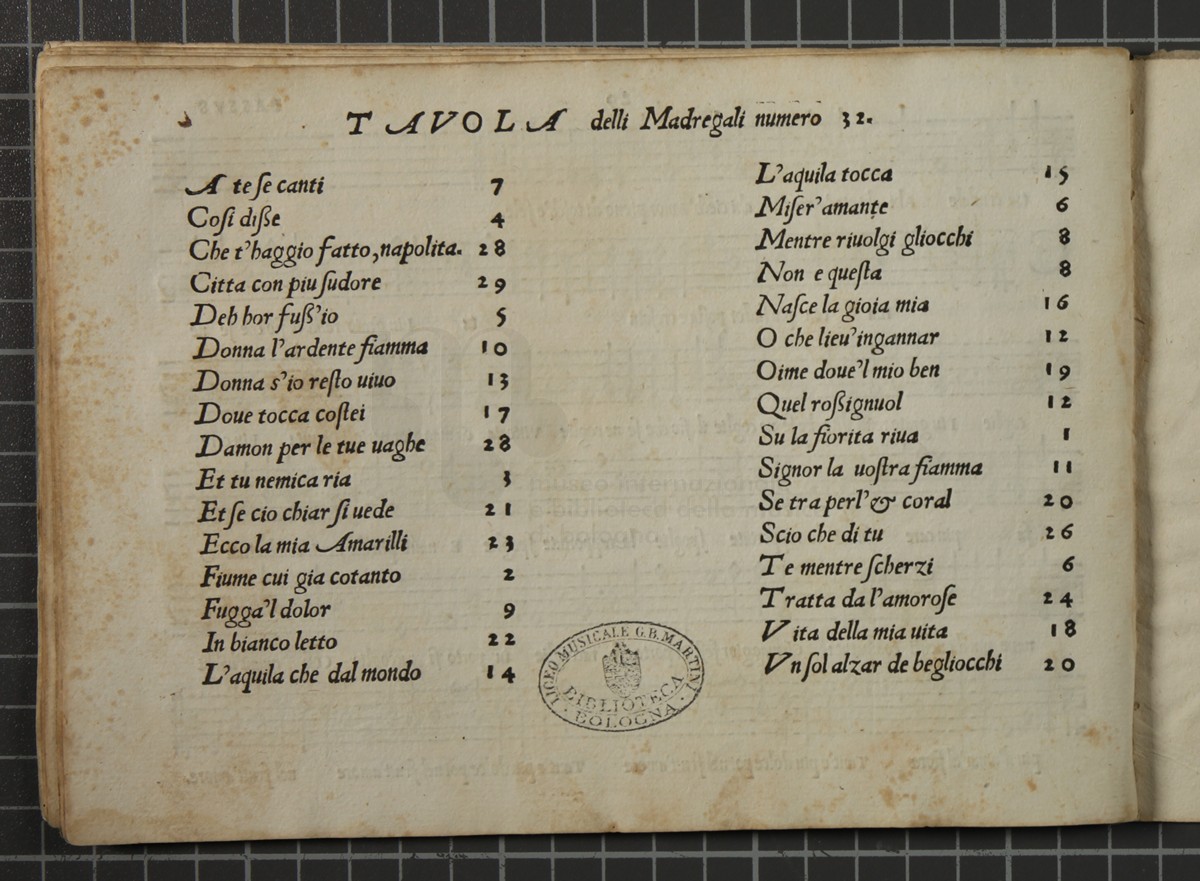 TAVOLA delli Madregali numero 32.
A te se canti 7
Cosi diße 4
Che t'haggio fatto, napolita. 28
Citta con piu sudore 29
Deh hor fuß'io 5
Donna l'ardente fiamma 10
Donna s'io resto uiuo 13
Doue tocca costei 17
Damon per le tue uaghe 28
Et tu nemica ria 3
Et se cio chiar si uede 21
Ecco la mia Amarilli 23
Fiume cui gia cotanto 2
Fugga'l dolor 9
In bianco letto 22
L'aquila che dal mondo 14
L'aquila tocca 15
Miser'amante 6
Mentre riuolgi gliocchi 8
Non e questa 8
Nasce la gioia mia 16
O che lieu'ingannar 12
Oime doue'l mio ben 19
Quel roßignuol 12
Su la fiorita riua 1
Signor la uostra fiamma 11
Se tra perl'& coral 20
Scio che di tu 26
Te mentre scherzi 6
Tratta da l'amorose 24
Vita della mia uita 18
Vn sol alzar de begliocchi 20
LICEO MUSICALE G.B. MARTINI
BIBLIOTECA
BOLOGNA